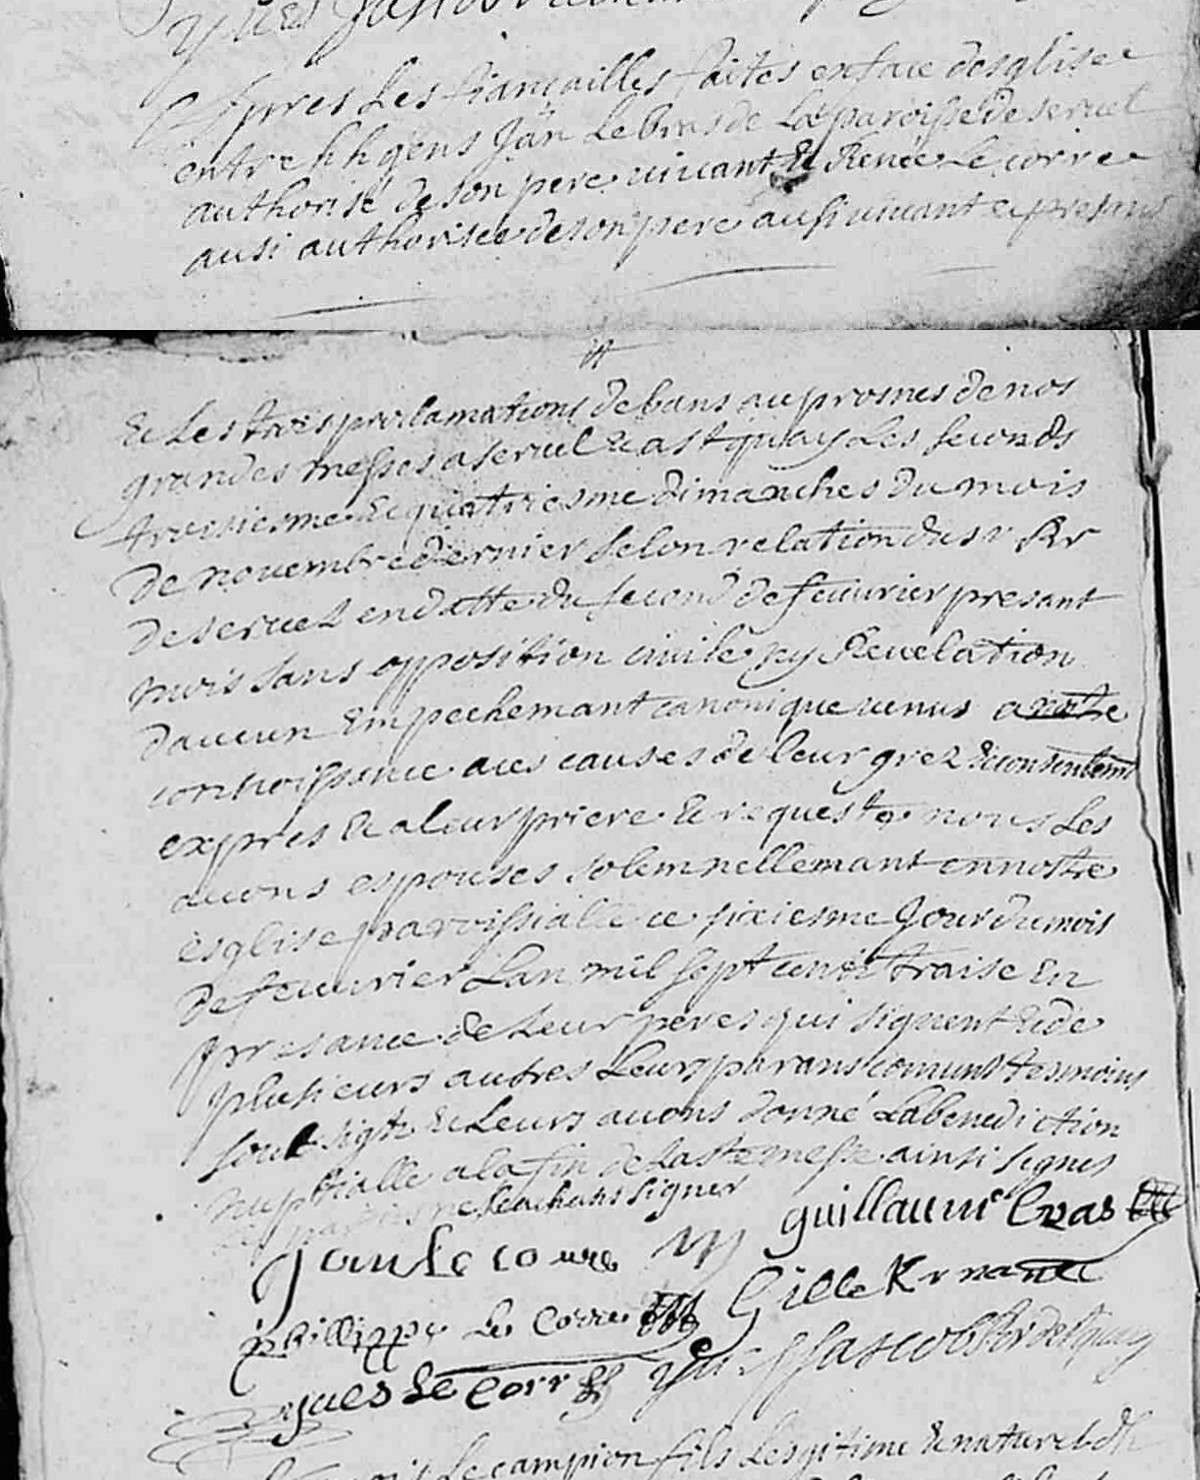 Yues Jascob
Apres Les fiancailles faites en face desglise
entre hh gens Jan Le bras de La paroisse de seruel
authorisé de son pere uiuant & Renee Le corre
ausi authorisee de son pere ausi uiuant e presant
& Les trois proclamations de bans au prosnes de nos
grandes messes a seruel & a st quay Les seconds
troisiesme & quatriesme dimanches du mois
de nouembre dernier selon relation du sr Rr
de seruel en datte du second de feuurier presant
mois sans opposition ciuile ny Reuelation
d'aucun Empechemant canonique uenus a notre
connoissance aus causes de leur grez & consentemt
expres & a leur priere & requeste nous Les
auons espouses solemnellemant en nostre
esglise paroissialle ce sixiesme Jour du mois
de feuurier Lan mil sept cents traise En
presance de Leur peres qui signent & de
plusieurs autres Leurs parans comuns tesmoins
soub signt & Leurs auons donné La benediction
nuptialle a la fin de La ste messe ainsi signes
les parties ne scachans signer
Jan Le corre guillaume bras
phillippe Le Corre Gille Kernante
yues Le Corr Yues Jascob Rr de st quay
Le campion fils Legitime & naturel dh